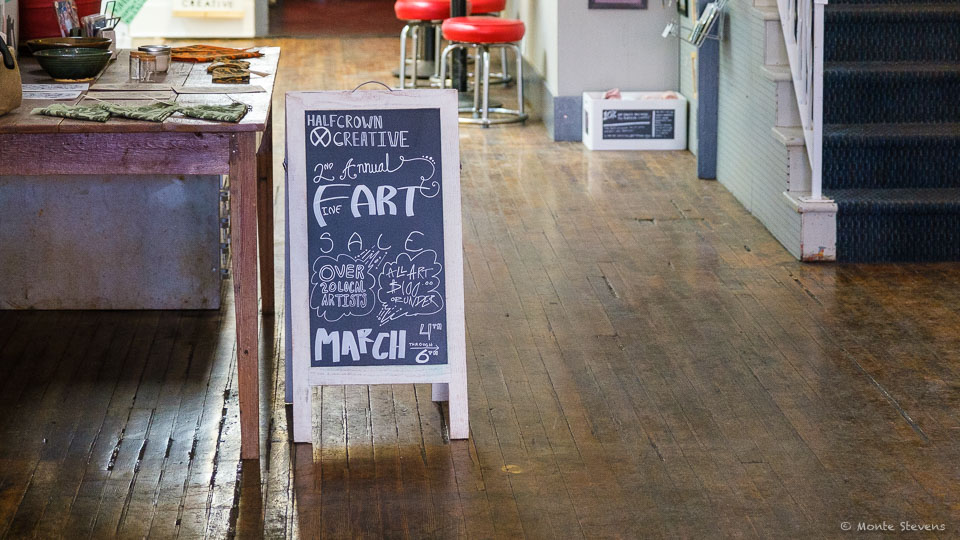 CREATIVE
HALFCROWN
CREATIVE
2ND Annual
FINE ART
SALE
OVER
20 LOCAL
ARTISTS
ALL ART
$100.00
OR UNDER
MARCH 4TH
THROUGH
6TH
© Monte Stevens